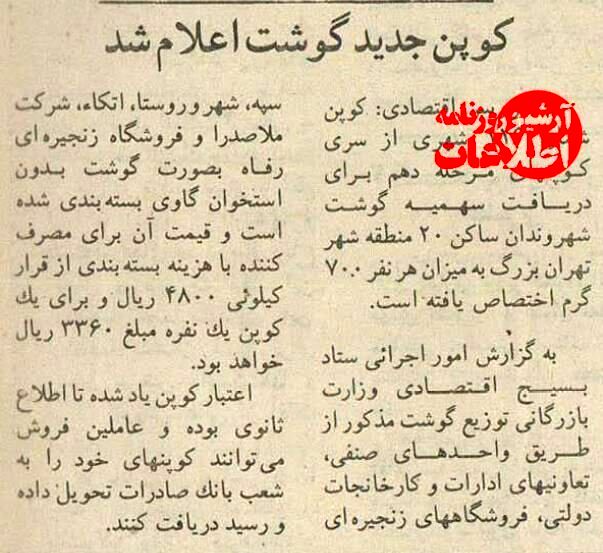 کوپن جدید گوشت اعلام شد
آرشیو روزنامه
اطلاعات
اقتصادی: کوپن
شهری از سری
مرحله دهم برای
دریافت سهمیه گوشت
شهروندان ساکن ۲۰ منطقه شهر
تهران بزرگ به میزان هر نفر ۷۰۰
گرم اختصاص یافته است.
به گزارش امور اجرائی ستاد
بسیج اقتصادی وزارت
بازرگانی توزیع گوشت مذکور از
طریق واحدهای صنفی،
تعاونیهای ادارات و کارخانجات
دولتی، فروشگاههای زنجیره‌ای
سپه، شهر و روستا، اتکاء، شرکت
ملاصدرا و فروشگاه زنجیره‌ای
رفاه بصورت گوشت بدون
استخوان گاوی بسته‌بندی شده
است و قیمت آن برای مصرف
کننده با هزینه بسته‌بندی از قرار
کیلوئی ۴۸۰۰ ریال و برای یك
کوپن یك نفره مبلغ ۳۳۶۰ ریال
خواهد بود.
اعتبار کوپن یاد شده تا اطلاع
ثانوی بوده و عاملین فروش
می‌توانند کوپنهای خود را به
شعب بانك صادرات تحویل داده
و رسید دریافت کنند.